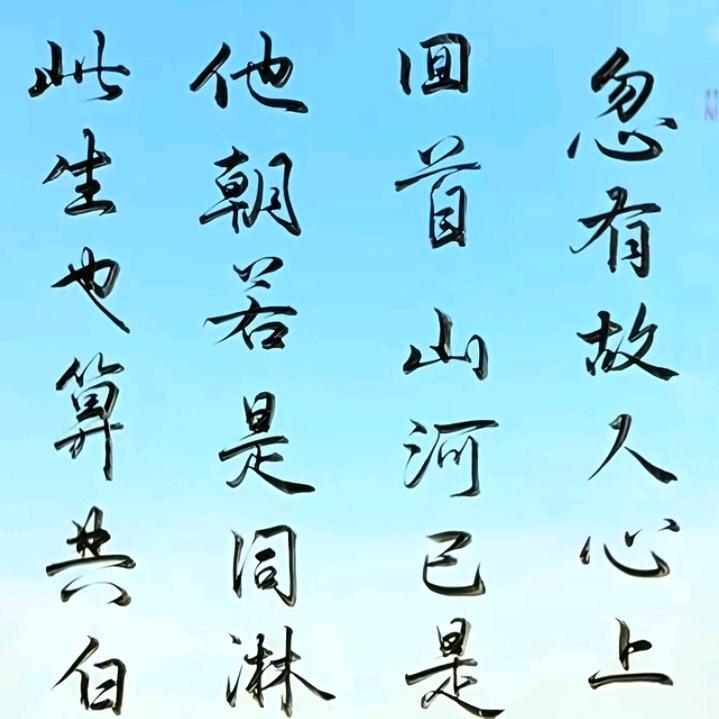 忽有故人心上
回首山河已是
他朝若是同淋
此生也算共白